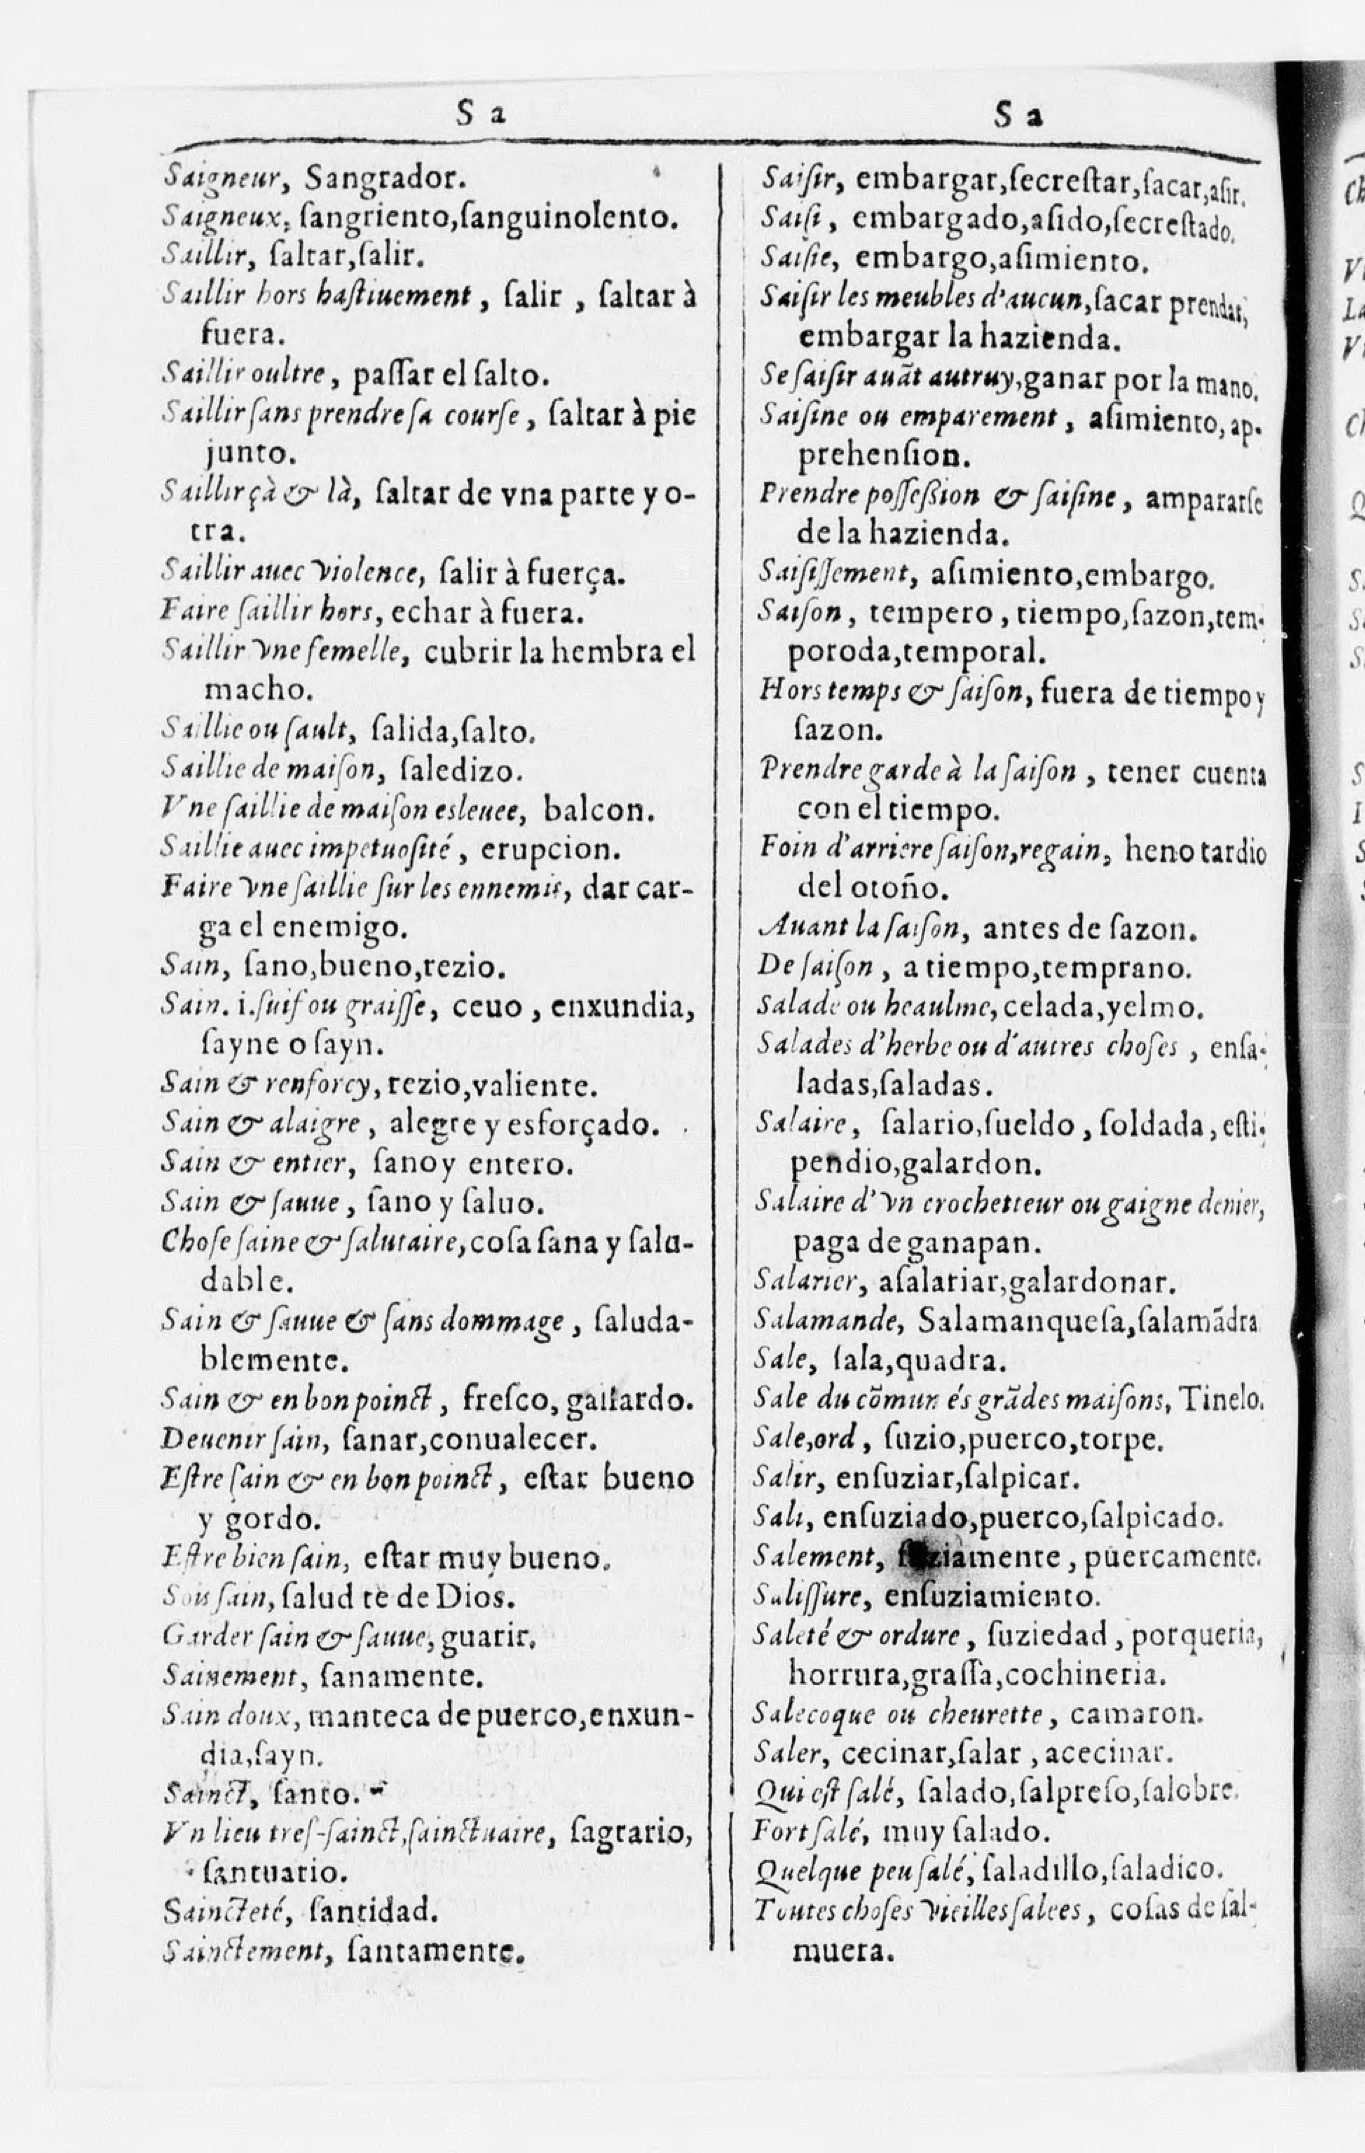 S a
Saigneur, Sangrador.
Saigneux, ſangriento,ſanguinolento.
Saillir, ſaltar,ſalir.
Saillir hors haſtiuement, ſalir, ſaltar à
fuera.
Saillir oultre, paſſar el ſalto.
Saillir ſans prendre ſa courſe, ſaltar à pie
junto.
Saillir çà & là, ſaltar de vna parte y o-
tra.
Saillir auec violence, ſalir à fuerça.
Faire ſaillir hors, echar à fuera.
Saillir vne femelle, cubrir la hembra el
macho.
Saillie ou ſault, ſalida,ſalto.
Saillie de maiſon, ſaledizo.
Vne ſaillie de maiſon esleuee, balcon.
Saillie auec impetuoſité, erupcion.
Faire vne ſaillie ſur les ennemis, dar car-
ga el enemigo.
Sain, ſano,bueno,rezio.
Sain. i.ſuif ou graiſſe, ceuo, enxundia,
ſayne o ſayn.
Sain & renforcy, rezio,valiente.
Sain & alaigre, alegre y esforçado.
Sain & entier, ſano y entero.
Sain & ſauue, ſano y ſaluo.
Choſe ſaine & ſalutaire, coſa ſana y ſalu-
dable.
Sain & ſauue & ſans dommage, ſaluda-
blemente.
Sain & en bon poinct, freſco, gallardo.
Deuenir ſain, ſanar,conualecer.
Eſtre ſain & en bon poinct, eſtar bueno
y gordo.
Eſtre bien ſain, eſtar muy bueno.
Sois ſain, ſalud te de Dios.
Garder ſain & ſauue, guarir.
Sainement, ſanamente.
Sain doux, manteca de puerco,enxun-
dia,ſayn.
Sainct, ſanto.
Vn lieu treſ-ſainct,ſainctuaire, ſagrario,
ſantuario.
Saincteté, ſantidad.
Sainctement, ſantamente.
S a
Saiſir, embargar,ſecreſtar,ſacar,aſir.
Saiſi, embargado,aſido,ſecreſtado.
Saiſie, embargo,aſimiento.
Saiſir les meubles d'aucun,ſacar prendas,
embargar la hazienda.
Se ſaiſir auãt autruy,ganar por la mano.
Saiſine ou emparement, aſimiento,ap-
prehenſion.
Prendre poſſeßion & ſaiſine, ampararſe
de la hazienda.
Saiſiſſement, aſimiento,embargo.
Saiſon, tempero, tiempo,ſazon,tem-
poroda,temporal.
Hors temps & ſaiſon, fuera de tiempo y
ſazon.
Prendre garde à la ſaiſon, tener cuenta
con el tiempo.
Foin d'arriere ſaiſon,regain, heno tardio
del otoño.
Auant la ſaiſon, antes de ſazon.
De ſaiſon, a tiempo,temprano.
Salade ou heaulme, celada,yelmo.
Salades d'herbe ou d'autres choſes, enſa-
ladas,ſaladas.
Salaire, ſalario,ſueldo, ſoldada, eſti-
pendio,galardon.
Salaire d'vn crochetteur ou gaigne denier,
paga de ganapan.
Salarier, aſalariar,galardonar.
Salamande, Salamanqueſa,ſalamãdra
Sale, ſala,quadra.
Sale du cõmun és grãdes maiſons, Tinelo.
Sale,ord, ſuzio,puerco,torpe.
Salir, enſuziar,ſalpicar.
Sali, enſuziado,puerco,ſalpicado.
Salement, ſuziamente, puercamente.
Saliſſure, enſuziamiento.
Saleté & ordure, ſuziedad, porqueria,
horrura,graſſa,cochineria.
Salecoque ou cheurette, camaron.
Saler, cecinar,ſalar, acecinar.
Qui eſt ſalé, ſalado,ſalpreſo,ſalobre.
Fort ſalé, muy ſalado.
Quelque peu ſalé, ſaladillo,ſaladico.
Toutes choſes vieilles ſalees, coſas de ſal-
muera.